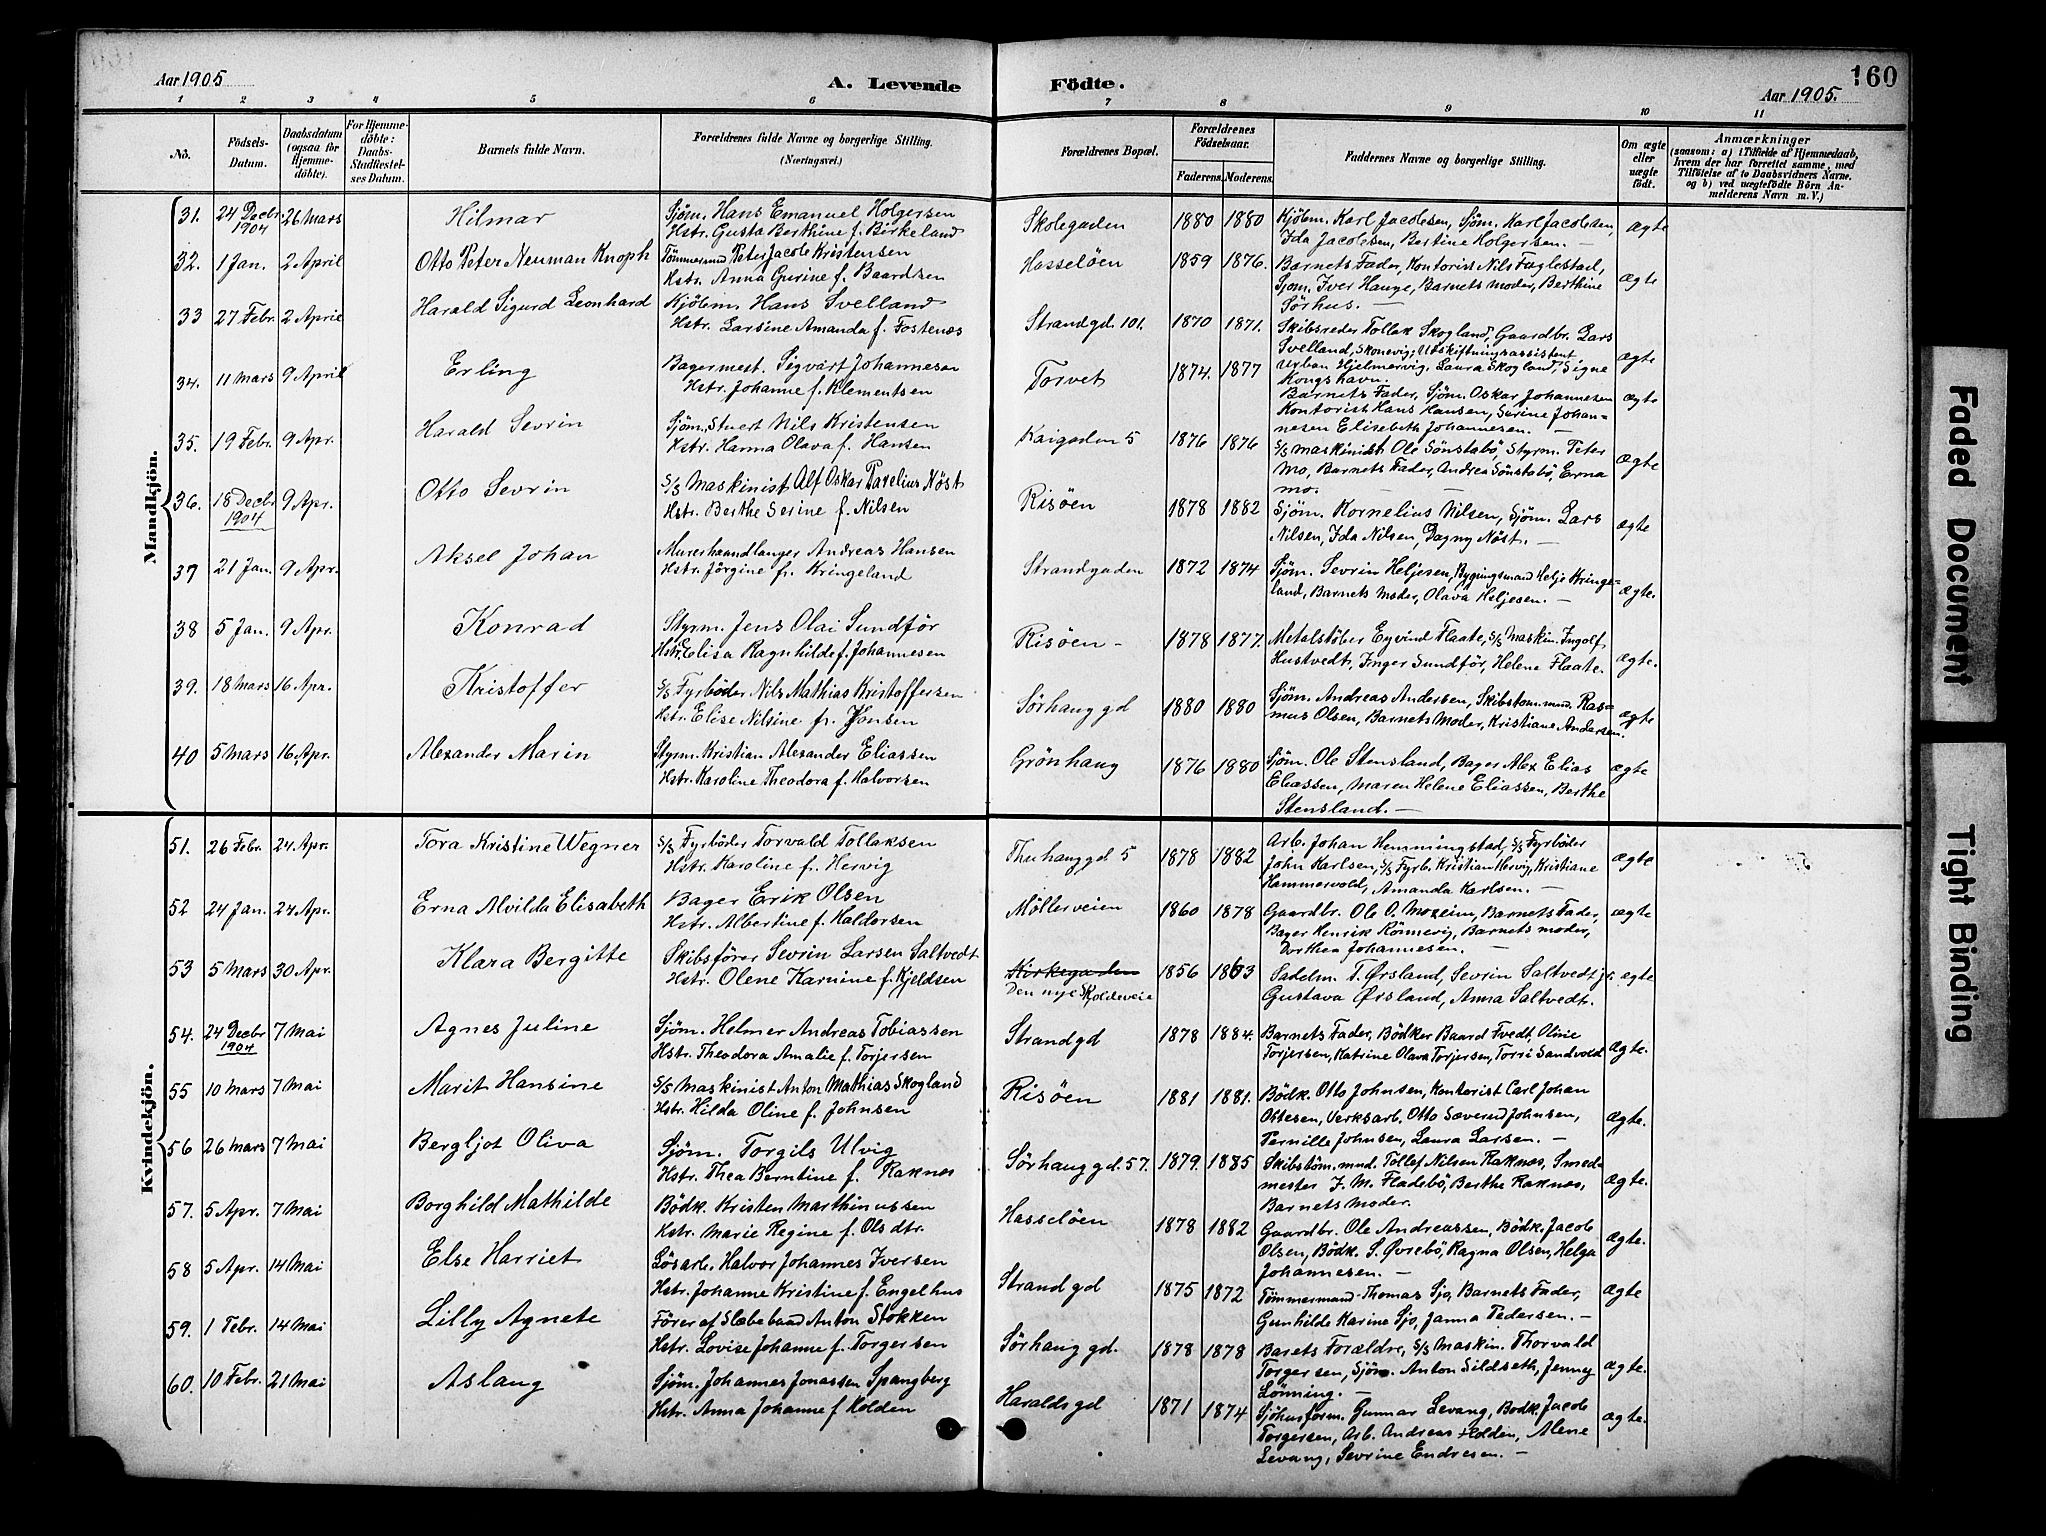 Aar 1905
A. Levende Födte.
160
Aar 1905.
1 2 3 4 5 6 7 8 9 10 11
Nö.
Födsels-Datum.
Daabsdatum (ogsaa for Hjemme-döbte).
For Hjemme-döbte: Daabs-Stadfæstel-ses Datum.
Barnets fulde Navn.
Forældrenes fulde Navne og borgerlige Stilling. (Næringsvei.)
Forældrenes Bopæl.
Forældrenes Födselsaar.
Faderens. Moderens.
Faddernes Navne og borgerlige Stilling.
Om ægte eller uægte födt.
Anmærkninger
(saasom: a) i Tilfælde af Hjemmedaab, hvem der har forrettet samme, med Tilföielse af to Daabsvidners Navne, og b) ved uægtefödte Börn An-melderens Navn m. V.)
Mandkjön.
31. 24 Decbr. 1904 26 Mars Hilmar
Sjöm. Hans Emanuel Holgersen
Hstr. Gusta Berthine f. Birkeland
Skolegaden 1880 1880
Kjölem. Karl Jacobsen, Sjöm. Karl Jacobsen,
Ida Jacobsen, Bertine Holgersen. —
ægte
32. 1 Jan. 2 April Otto Peter Neuman Knoph
Tömmermand Peter Jacob Kristensen
Hstr. Anna Gurine f. Baardsen
Hasselöen 1859 1876.
Barnets Fader, Kontorist Nils Fuglestad,
Sjöm. Iver Hauge, Barnets Moder, Berthine
Sörhus. —
ægte
33 27 Febr. 2 April Harald Sigurd Leonhard
Kjölem. Hans Svelland
Hstr. Larsine Amanda f. Fostenæs
Strandgd. 101. 1870 1871.
Skibsreder Tollak Skogland, Gaardbr. Lars
Svelland, Skonevig; Udskiftningsassistent
Urban Hjelmervig, Laura Skogland, Signe
Kongshavn.
ægte
34. 11 Mars 9 April Erling
Bagermest. Sigvart Johannesen
Hstr. Johanne f. Klementsen
Torvet 1874. 1877
Barnets Fader, Sjöm. Oskar Johannesen
Kontorist Hans Hansen, Serine Johan-
nesen Elisebeth Johannesen. —
ægte
35. 19 Febr. 9 Apr. Harald Sevrin
Sjöm. Stuert Nils Kristensen
Hstr. Hanna Olava f. Hansen
Kaigaden 5 1876 1876
S/S Maskinist Ole Sönstabö, Styrm. Peter
Mo, Barnets Fader, Andrea Sönstabö, Erna
Mo.
ægte
36. 18 Decbr 1904 9 Apr. Otto Sevrin
S/S Maskinist Alf Oskar Parelius Nöst
Hstr. Berthe Serine f. Nilsen
Risöen 1878 1882
Sjöm. Kornelius Nilsen, Sjöm. Lars
Nilsen, Ida Nilsen, Dagny Nöst. —
ægte
37 21 Jan. 9 Apr. Aksel Johan
Murerhaandlanger Andreas Hansen
Hstr. Jörgine f. Kringeland
Strandgaden 1872 1874
Sjöm. Sevrin Heljesen, Bygningsmand Helje Kringe-
land, Barnets Moder, Olava Heljesen. —
ægte.
38 5 Jan. 9 Apr. Konrad
Styrm. Jens Olai Sundför
Hstr. Elisa Ragnhilde f. Johannesen
Risöen - 1878 1877.
Metalstöber Eyvind Flaate, S/S Maskin. Ingolf
Hustvedt, Inger Sundför, Helene Flaate.
ægte.
39. 18 Mars 16 Apr. Kristoffer
S/S Fyrböder Nils Mathias Kristoffersen
Hstr. Elise Nilsine f. Jonsen
Sörhauggd 1880 1880
Sjöm. Andreas Andersen, Skibstöm. mnd. Ras-
mus Olsen, Barnets Moder, Kristiane Andersen.
ægte
40 5 Mars 16 Apr. Alexander Marin
Styrm. Kristian Alexander Eliassen
Hstr. Karoline Theodora f. Halvorsen
Grönhaug 1876 1880
Sjöm. Ole Stensland, Bager Alex Elias
Eliassen, Maren Helene Eliassen, Berthe
Stensland. —
ægte
Kvindekjön.
51. 26 Febr. 24 Apr. Tora Kristine Wegner
S/S Fyrböder Torvald Tollaksen
Hstr. Karoline f. Hervig
Thuhauggd 5 1878 1882
Arb. Johan Hemmingstad, S/S Fyrböder
John Karlsen, S/S Fyrb. Kristian Hervig, Kristiane
Hammervold, Amanda Karlsen. —
ægte
52 24 Jan. 24 Apr. Erna Alvilda Elisabeth
Bager Erik Olsen
Hstr. Albertine f. Haldorsen
Möllerveien 1860 1878
Gaardbr. Ole O. Moxeim, Barnets Fader,
Bager Henrik Rönnevig, Barnets Moder,
Dorthea Johannesen. —
ægte
53 5 Mars 30 Apr. Klara Bergitte
Skibsförer Sevrin Larsen Saltvedt
Hstr. Olene Karnine f. Kjeldsen
Kirkegaden
Den nye Skoldeveie 1856 1863
Sadelm. T. Ørsland, Sevrin Saltvedt jr.
Gustava Ørsland, Anna Saltvedt.
ægte
54. 24 Decbr 1904 7 Mai Agnes Juline
Sjöm. Helmer Andreas Tobiassen
Hstr. Theodora Amalie f. Torjersen
Strandgd 1878 1884.
Barnets Fader, Bödker Baard Tvedt, Oline
Torjersen, Katrine Olava Torjersen, Torri Sandvold
ægte.
55 10 Mars 7 Mai Marit Hansine
S/S Maskinist Anton Mathias Skogland
Hstr. Hilda Oline f. Johnsen
Risöen 1881 1881.
Bödk. Otto Johnsen, Kontorist Carl Johan
Ottesen, Verksarb. Otto Severin Johnsen,
Pernille Johnsen, Laura Larsen. —
ægte.
56 26 Mars 7 Mai Bergljot Oliva
Sjöm. Torgils Ulvig
Hstr. Thea Berntine f. Raknæs
Sörhauggd. 57. 1879. 1885
Skibstöm. mnd. Tollef Nilsen Raknæs, Smed-
mester J. M. Fladebö, Berthe Raknæs,
Barnets Moder.
ægte.
57. 5 Apr. 7 Mai Borghild Mathilde
Bödk. Kristen Marthinussen
Hstr. Marie Regine f. Olsdtr.
Hasselöen 1878 1882
Gaardbr. Ole Andreassen, Bödk. Jacob
Olsen, Bödk. S. Øvrebö, Ragna Olsen, Helga
Johannesen. —
ægte.
58 5 Apr. 14 Mai Else Harriet
Lösarb. Halvor Johannes Iversen
Hstr. Johanne Kristine f. Engelhus
Strandgd 1875 1872
Tömmermand Thomas Sjo, Barnets Fader,
Gunhilde Karine Sjo, Janna Pedersen. —
ægte
59. 1 Febr. 14 Mai Lilly Agnete
Förer af Slæbebaad Anton Stokken
Hstr. Lovise Johanne f. Torgersen
Sörhauggd. 1878 1878
Barets Forældre, S/S Maskin. Thorvald
Torgersen, Sjöm. Anton Sildseth, Jenny
Lönning. —
ægte.
60. 10 Febr. 21 Mai Aslaug
Sjöm. Johannes Jonassen Spangberg
Hstr. Anna Johanne f Holden
Haraldsgd 1871 1874
Sjöhusform. Gunnar Levang, Bodk. Jacob
Torgersen, Arb. Andreas Holden, Alene
Levang, Sevrine Endresen. —
ægte.
Faded Document
Tight Binding